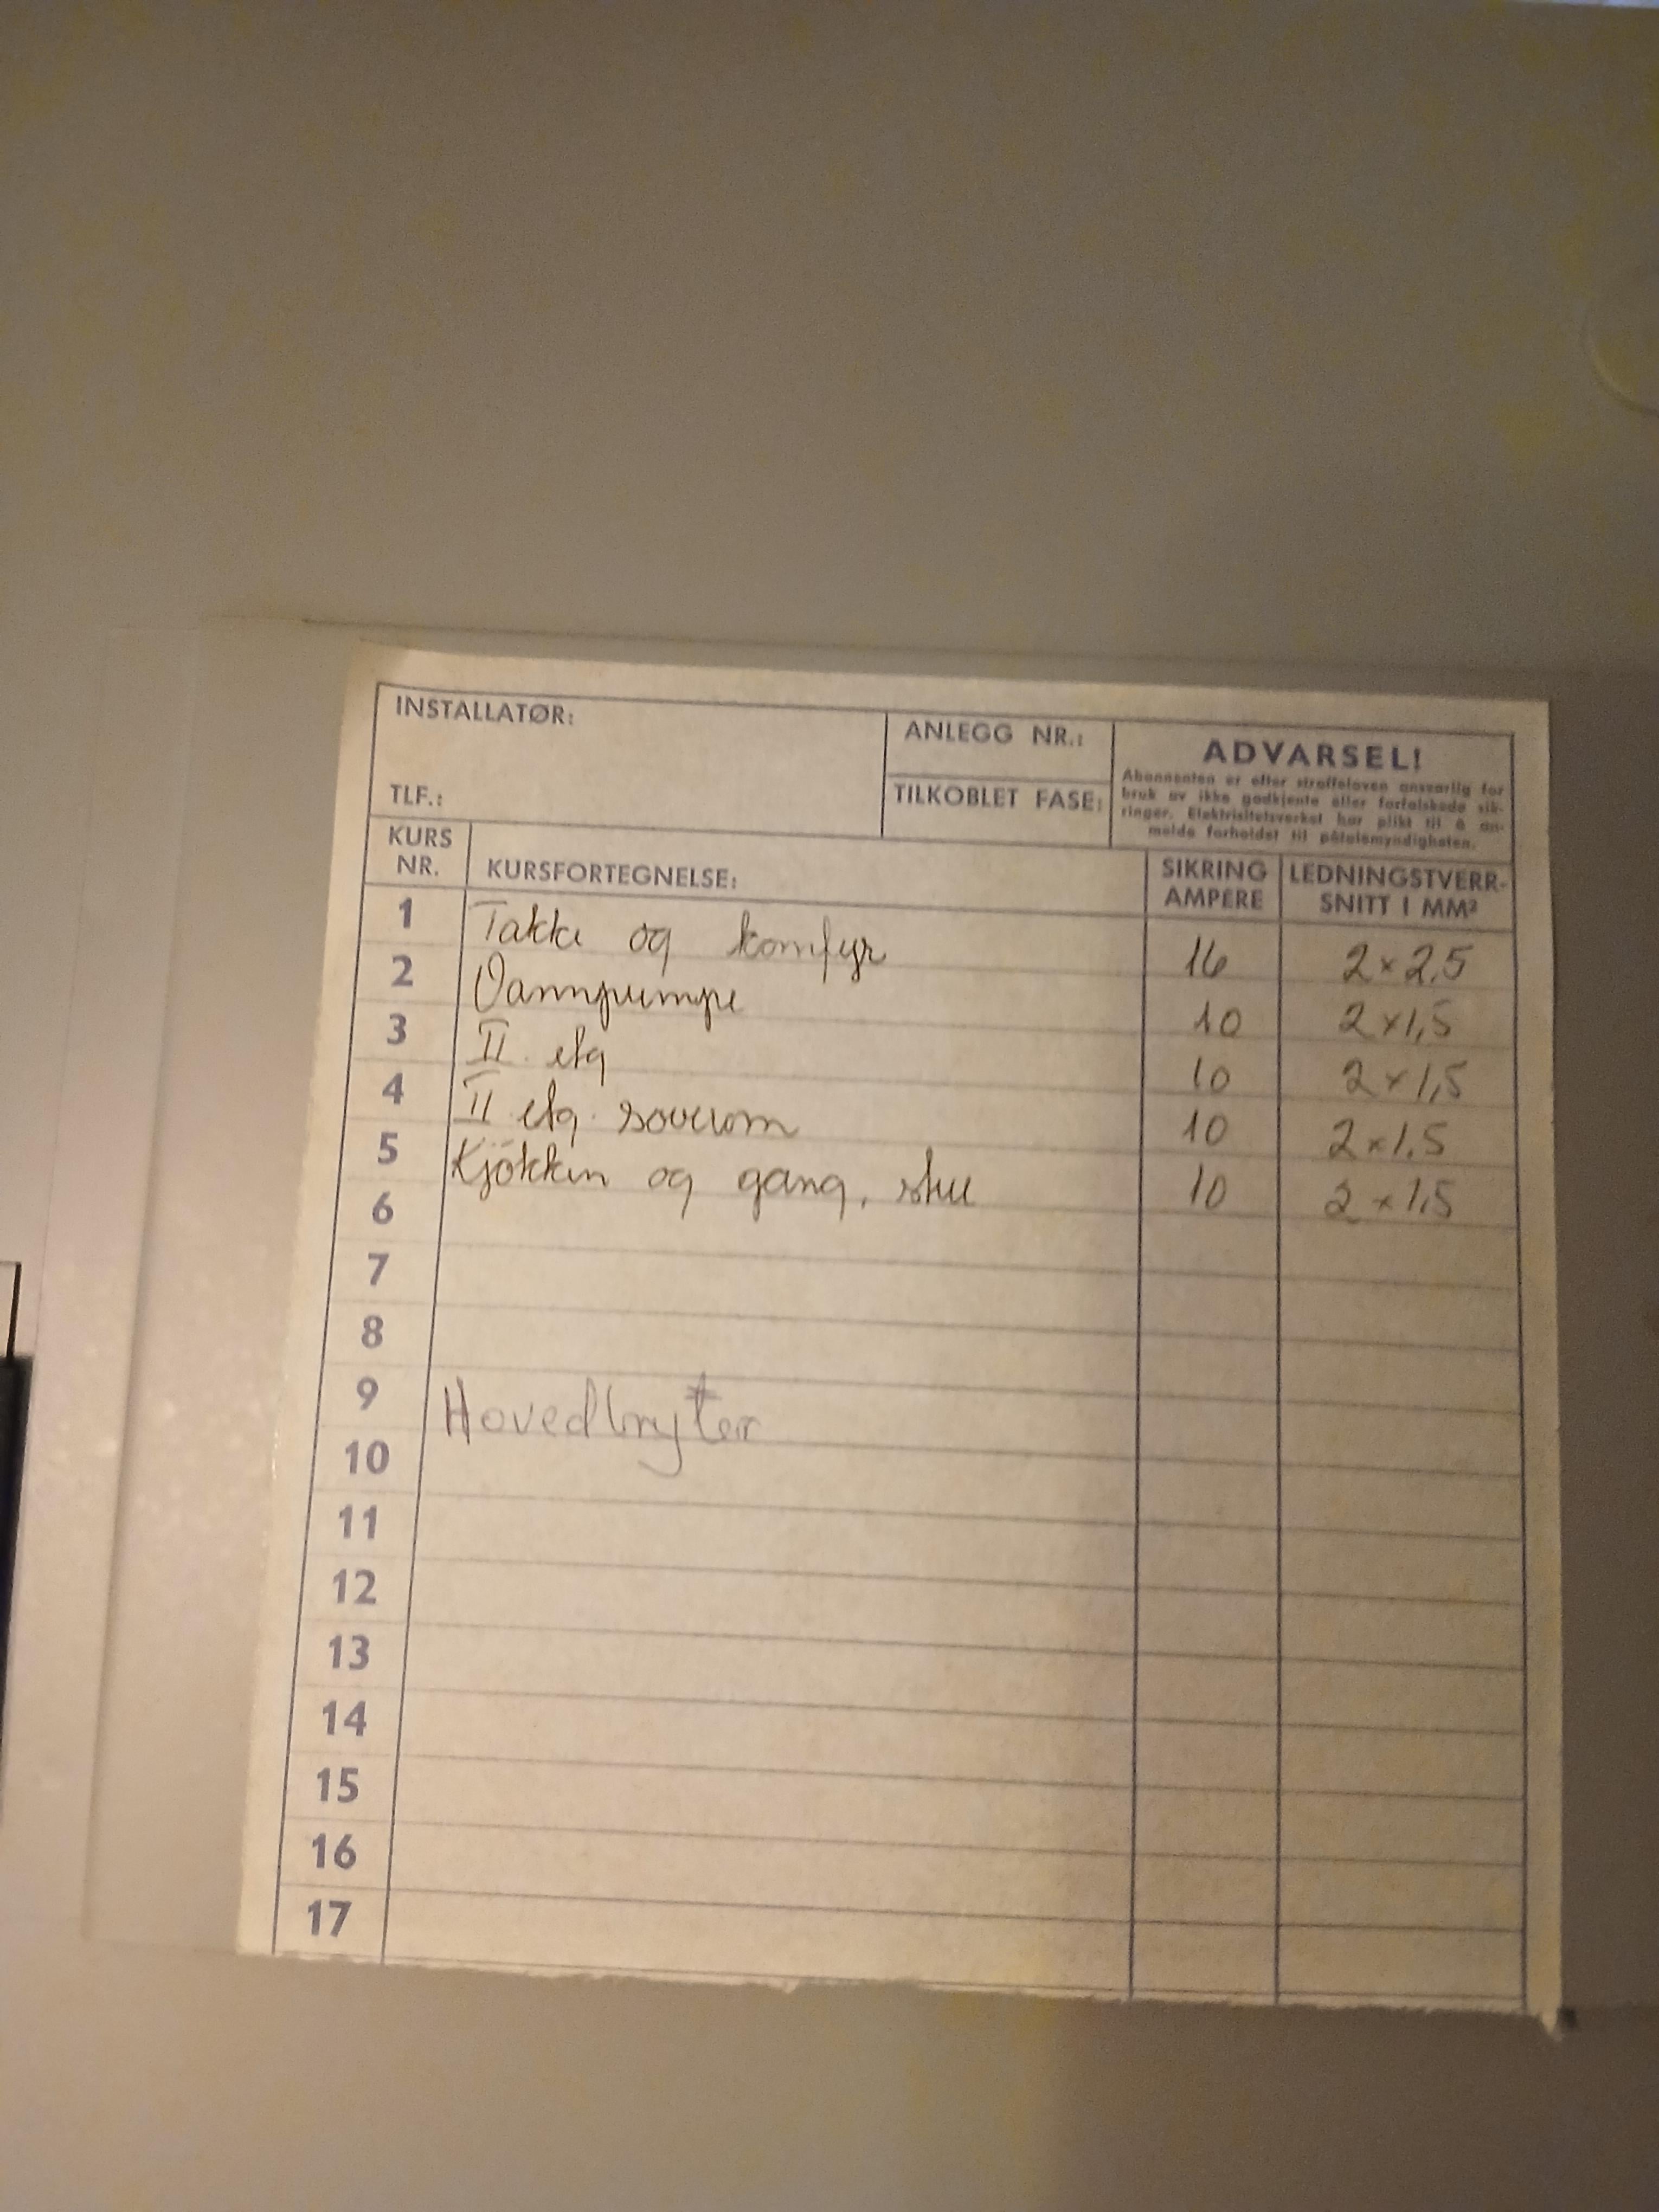 INSTALLATØR:
TLF.:
ANLEGG NR.:
TILKOBLET FASE:
ADVARSEL!
Abonnenten er efter straffeloven ansvarlig for
bruk av ikke godkjente eller forfalskede sik-
ringer. Elektrisitetsverket har plikt til å an-
melde forholdet til påtalemyndigheten.
KURS NR. KURSFORTEGNELSE: SIKRING AMPERE LEDNINGSTVERR-SNITT I MM²
1 Takke og komfyr 16 2 × 2,5
2 Vannpumpe 10 2 × 1,5
3 II. etg 10 2 × 1,5
4 II. etg. soverom 10 2 × 1,5
5 Kjökken og gang, stue 10 2 × 1,5
6
7
8
9 Hovedbryter
10
11
12
13
14
15
16
17